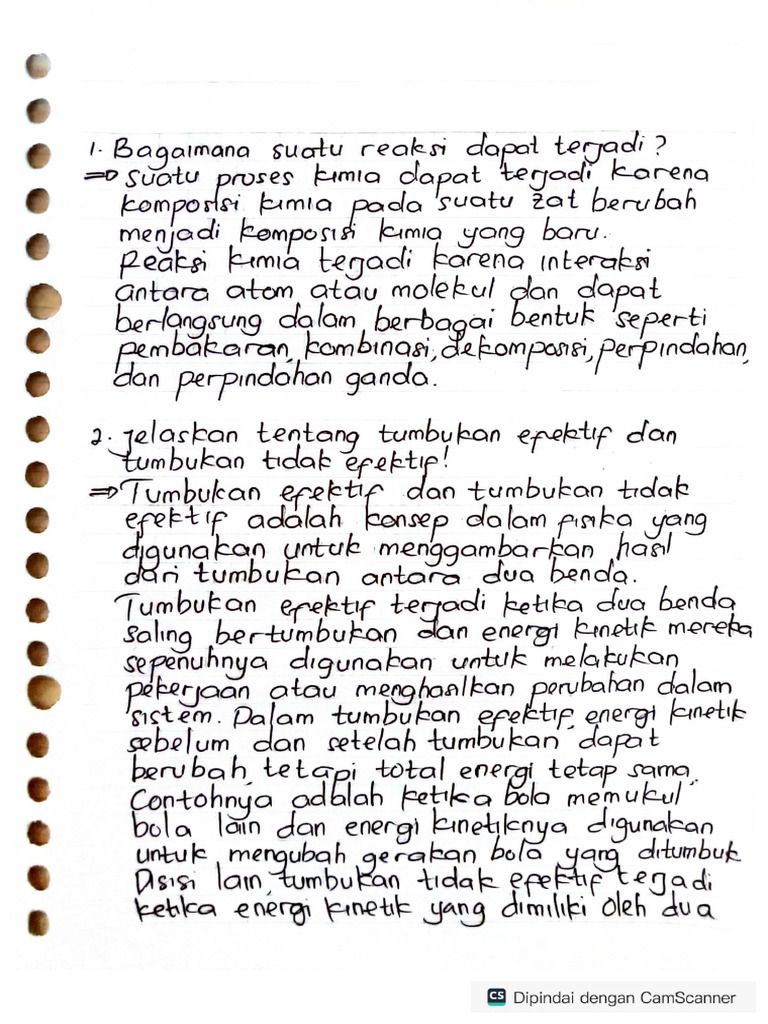 1. Bagaimana suatu reaksi dapat terjadi?
⇒ Suatu proses kimia dapat terjadi karena
komposisi kimia pada suatu zat berubah
menjadi komposisi kimia yang baru.
Reaksi kimia terjadi karena interaksi
antara atom atau molekul dan dapat
berlangsung dalam berbagai bentuk seperti
pembakaran, kombinasi, dekomposisi, perpindahan,
dan perpindahan ganda.
2. Jelaskan tentang tumbukan efektif dan
tumbukan tidak efektif!
⇒ Tumbukan efektif dan tumbukan tidak
efektif adalah konsep dalam fisika yang
digunakan untuk menggambarkan hasil
dari tumbukan antara dua benda.
Tumbukan efektif terjadi ketika dua benda
saling bertumbukan dan energi kinetik mereka
sepenuhnya digunakan untuk melakukan
pekerjaan atau menghasilkan perubahan dalam
sistem. Dalam tumbukan efektif, energi kinetik
sebelum dan setelah tumbukan dapat
berubah, tetapi total energi tetap sama.
Contohnya adalah ketika bola memukul
bola lain dan energi kinetiknya digunakan
untuk mengubah gerakan bola yang ditumbuk
Disisi lain, tumbukan tidak efektif terjadi
ketika energi kinetik yang dimiliki oleh dua
CS Dipindai dengan CamScanner